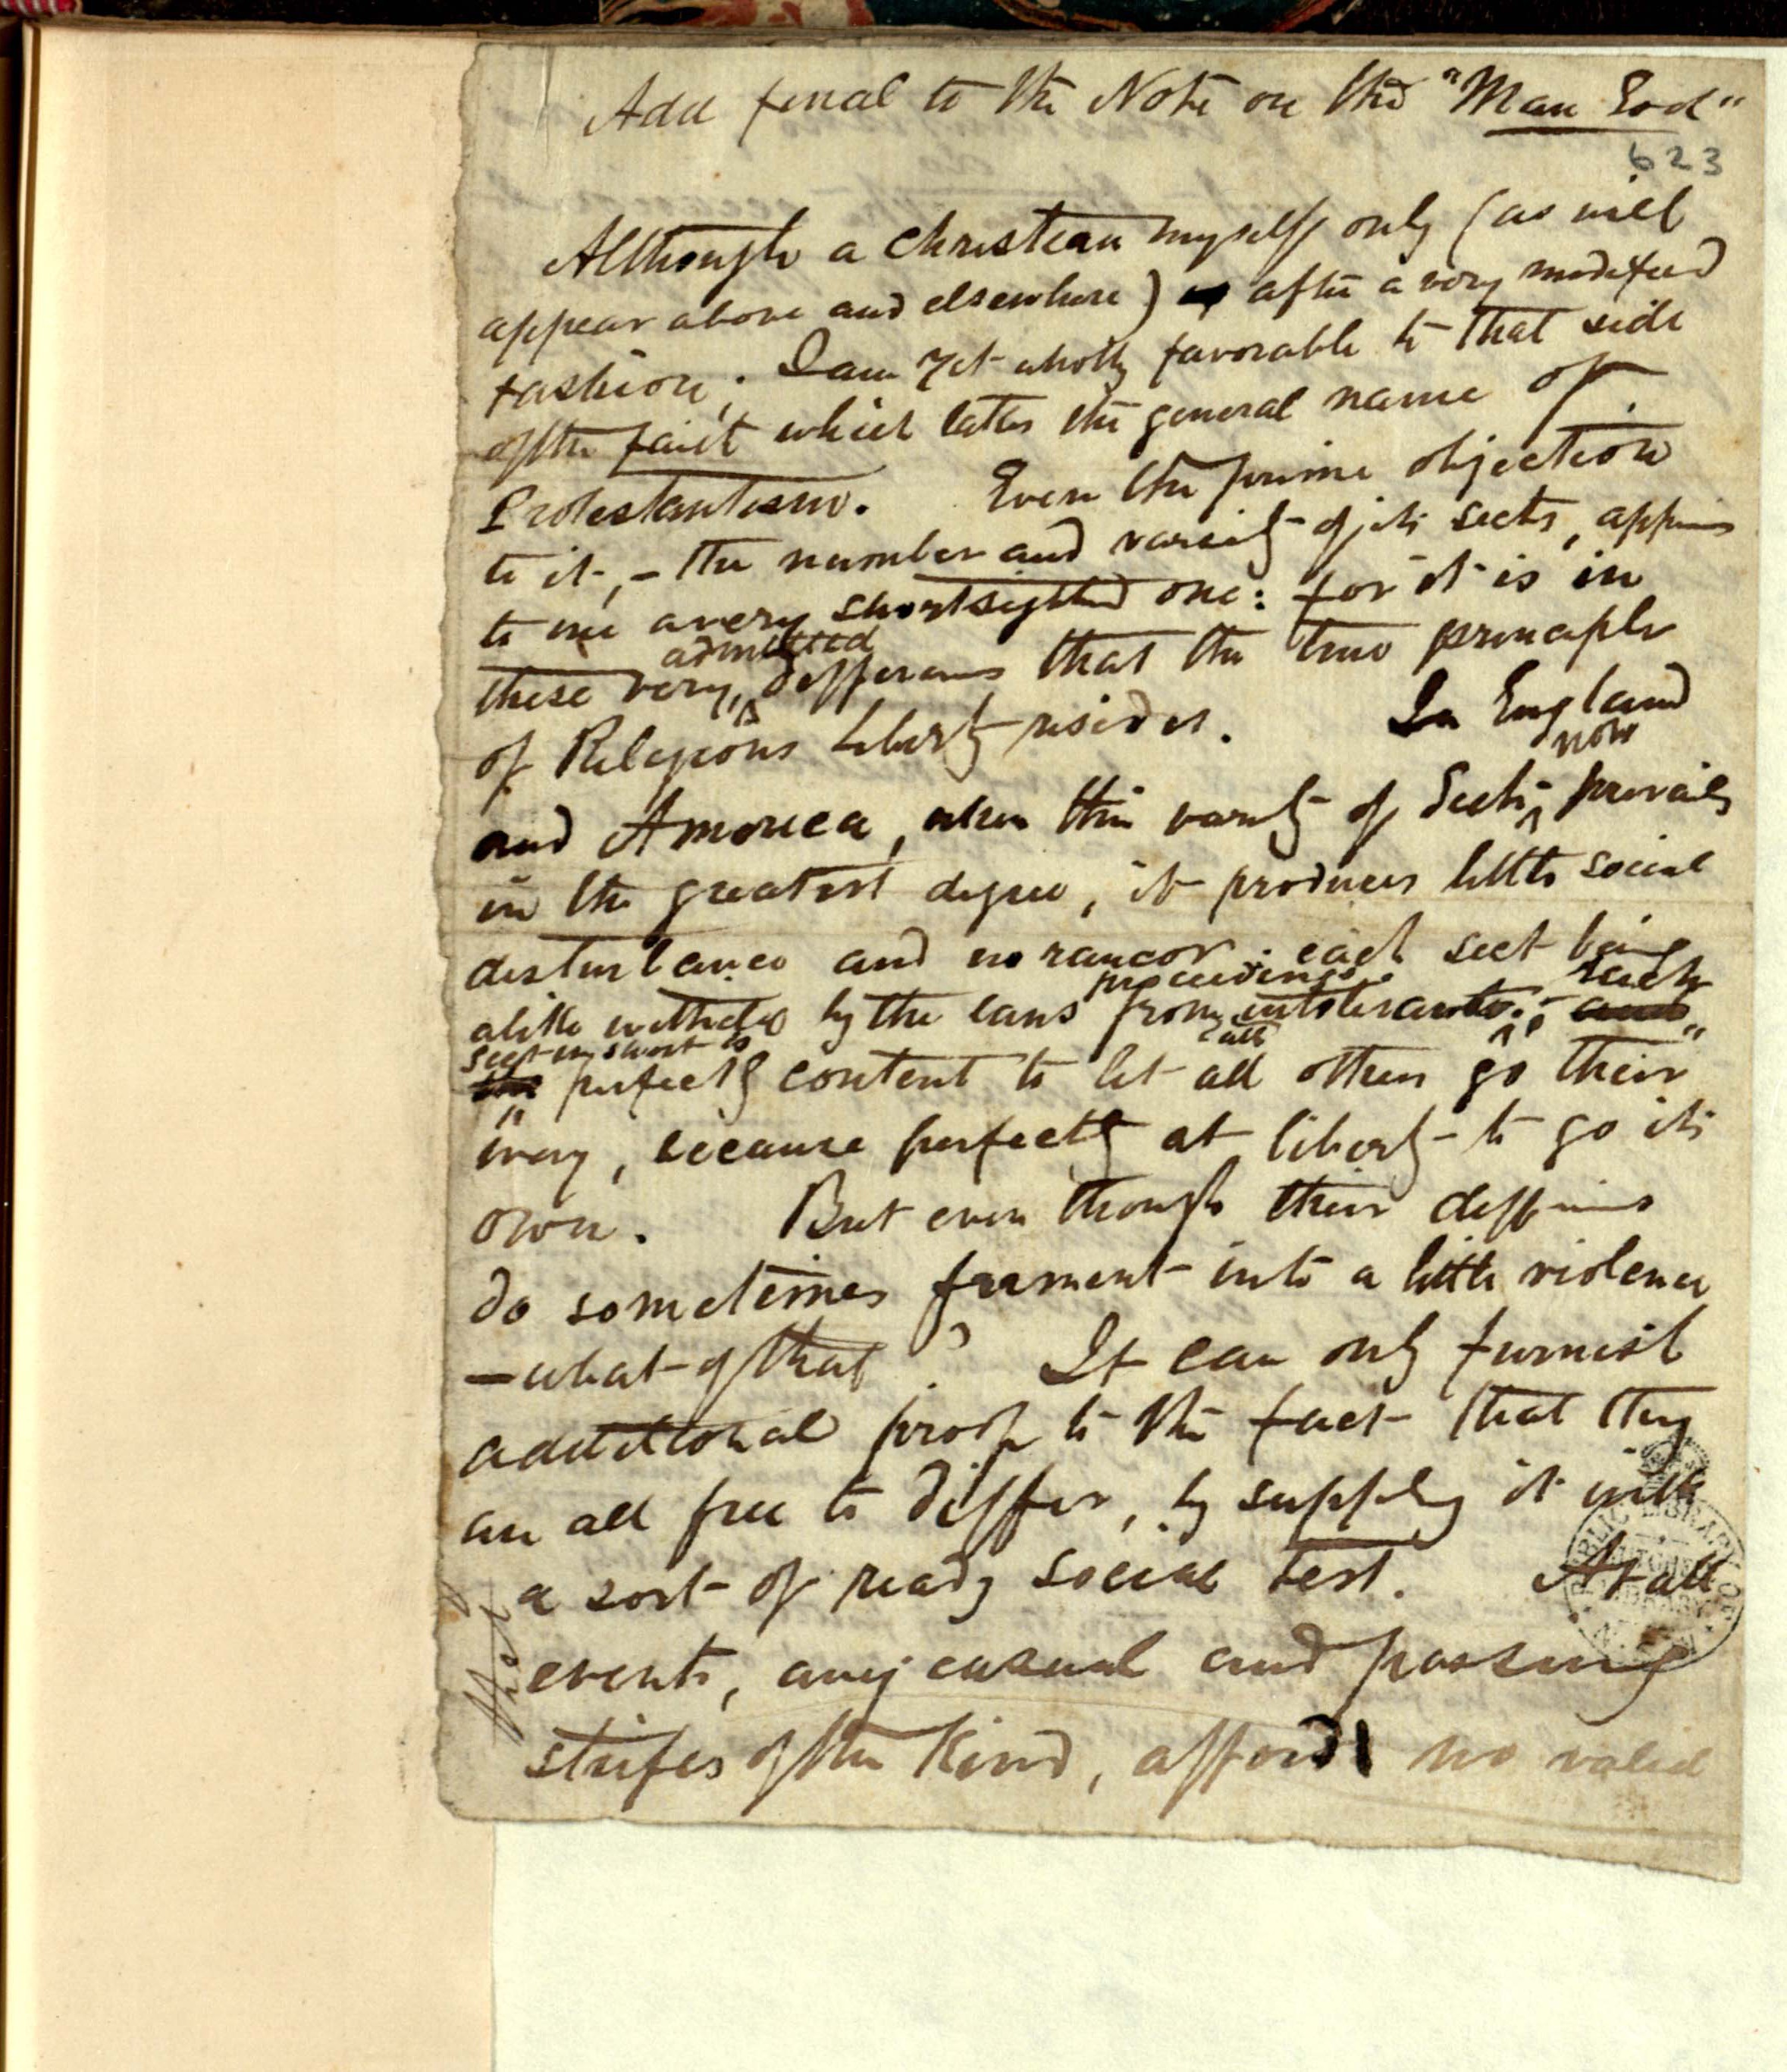 Add final to the Note on the "Man God"
623
Although a Christian myself only (as will
appear above and elsewhere) after a very modified
fashion; I am yet wholly favorable to that side
of the faith which takes the general name of
Protestantism. Even the prime objection
to it,—the number and variety of its sects, appears
to me a very shortsighted one: for it is in
admitted
these very differences that the true principle
of Religious Liberty resides. In England
now
and America, where this variety of Sects prevails
in the greatest degree, it produces little social
disturbance and no rancor: each sect being
proceedings: each
alike withheld by the laws from intolerant and
sect in short is all
the perfectly content to let all others go their
way, because perfectly at liberty to go its
own. But even though their differences
do sometimes ferment into a little violence
—what of that? It can only furnish
additional proof to the fact that they
are all free to differ, by supplying it with
a sort of ready social test. At all
events, any casual and passing
strifes of the kind, afford no valid
PUBLIC LIBRARY OF N.S.W.